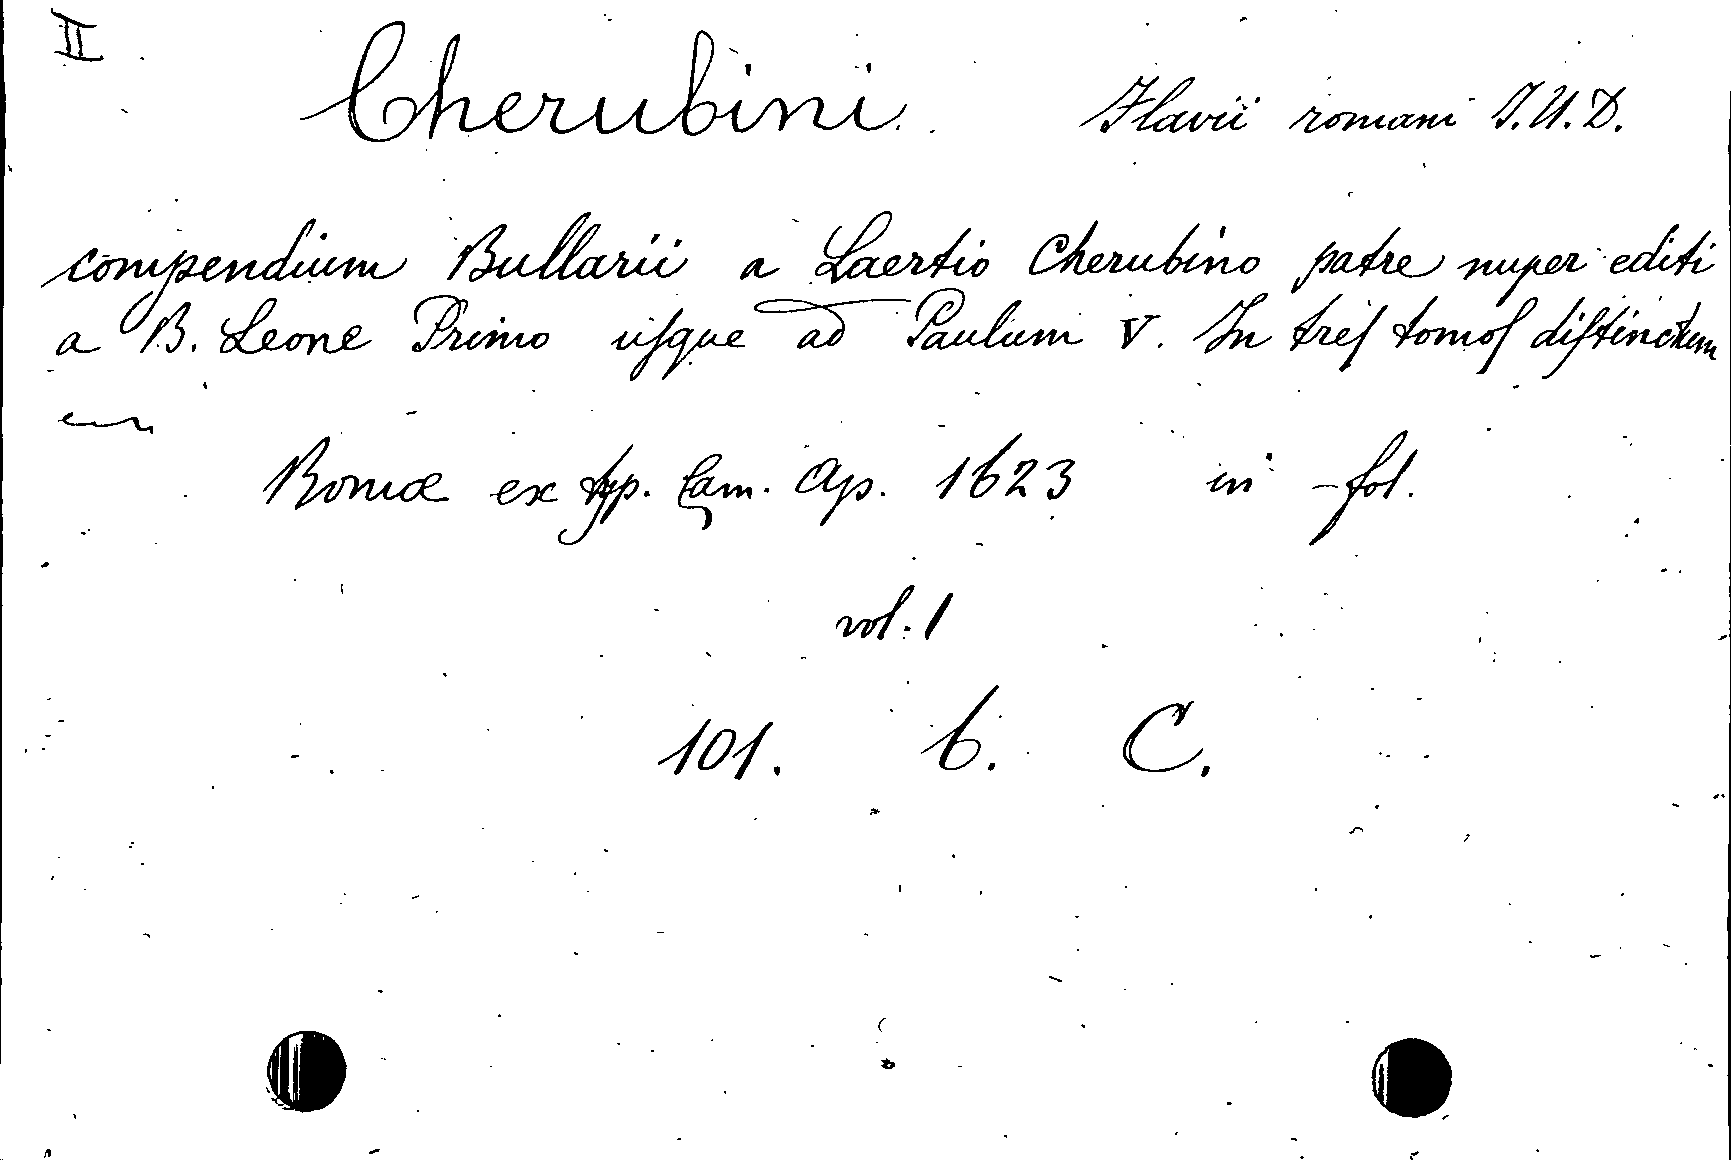 II
Cherubini Flavii romani J.U.D.
compendium Bullarii a Laertio Cherubino patre nuper editi
a B. Leone Primo uſque ad Paulum V. In treſ tomoſ diſtinctum
Romæ ex typ. Cam. Ap. 1623 in-fol.
vol. 1
101. 6. C.